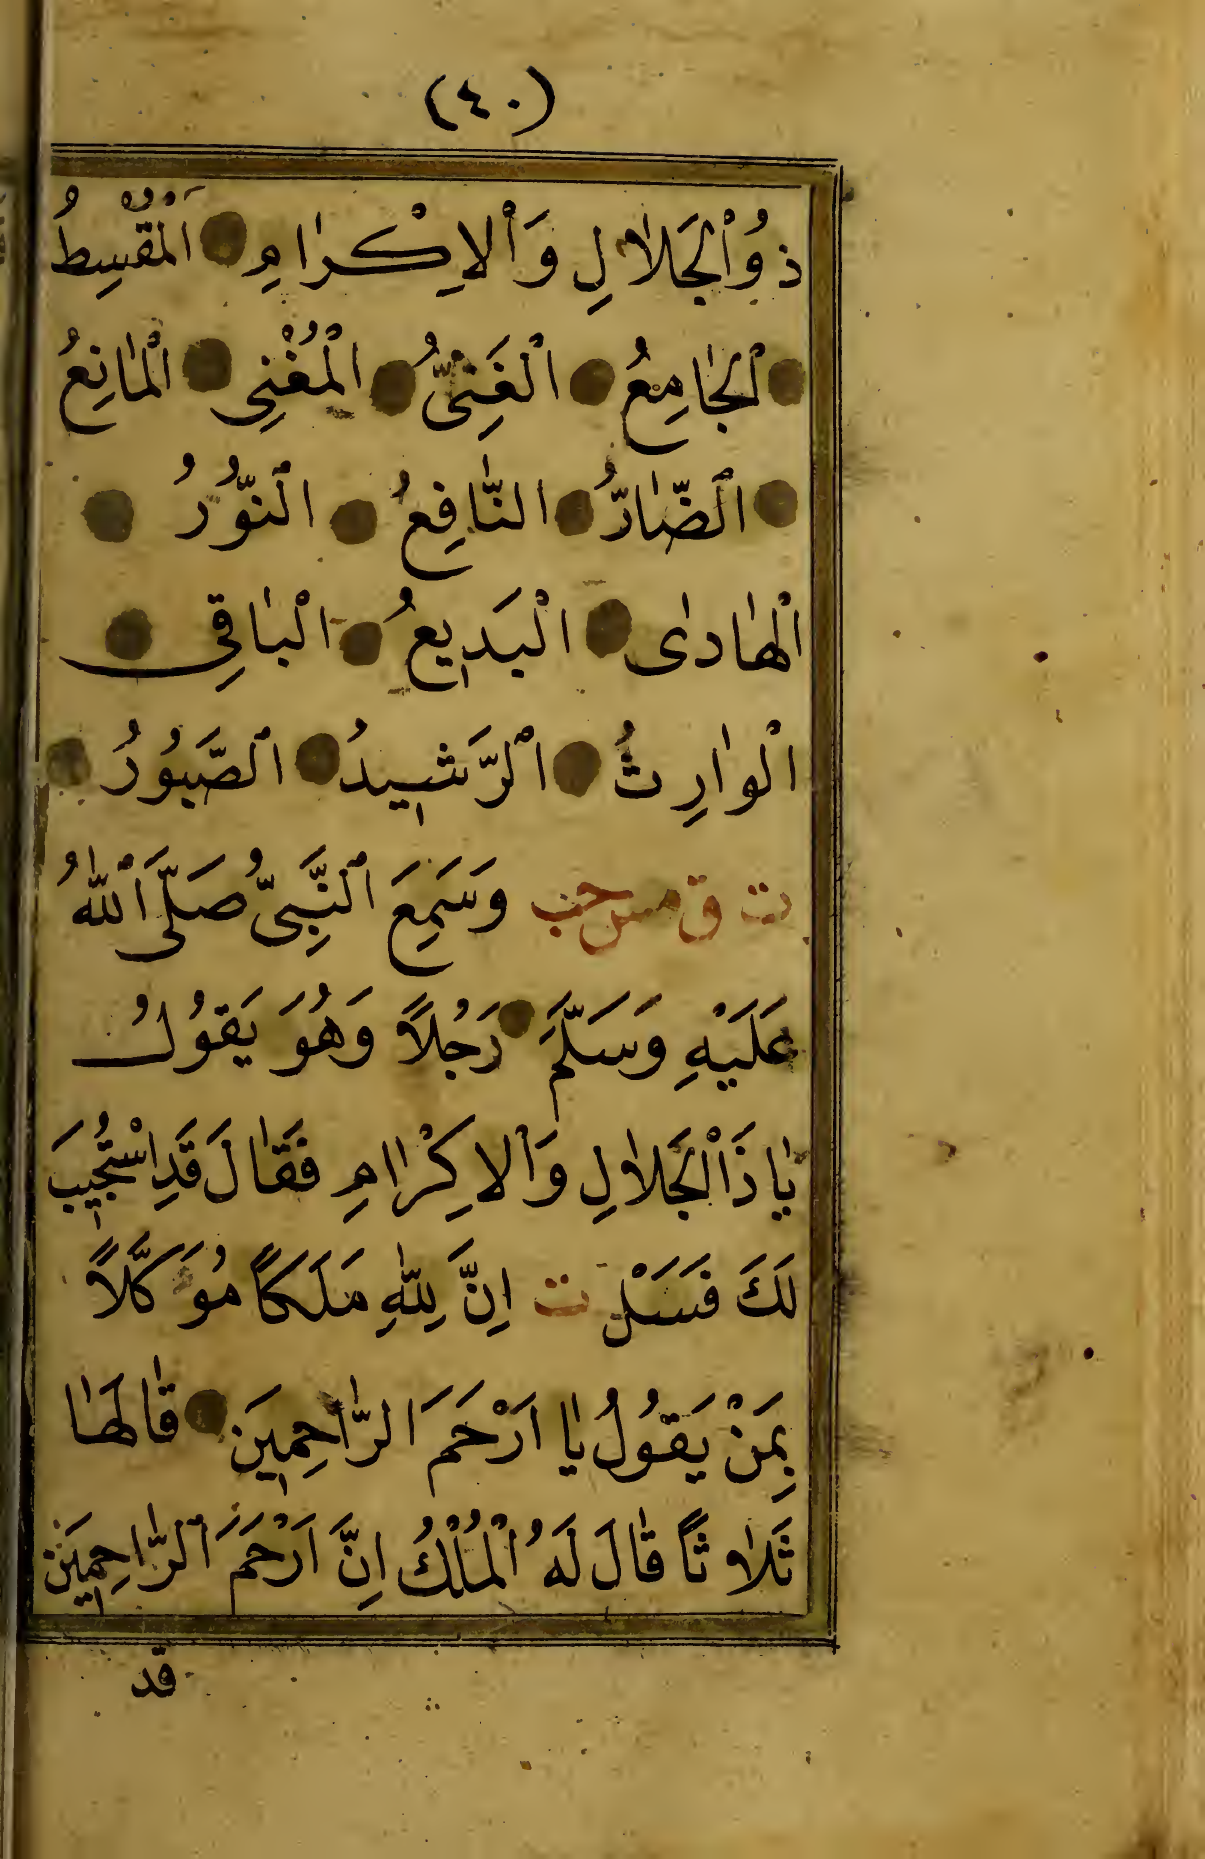 (٤٠)
ذُوالْجَلَالِ وَالْاِكْرَامِ الْمُقْسِطُ
الْجَامِعُ الْغَنِىُّ الْمُغْنِى الْمَانِعُ
الضَّارُّ النَّافِعُ النُّورُ
الْهَادِى الْبَدِيعُ الْبَاقِى
الْوَارِثُ الرَّشِيدُ الصَّبُورُ
ت ق مس حب وَسَمِعَ النَّبِىُّ صَلَّى اللّٰهُ
عَلَيْهِ وَسَلَّمَ رَجُلاً وَهُوَ يَقُولُ
يَا ذَا الْجَلَالِ وَالْاِكْرَامِ فَقَالَ قَدِ اسْتُجِيبَ
لَكَ فَسَلْ ت اِنَّ لِلّٰهِ مَلَكاً مُوَكَّلاً
بِمَنْ يَقُولُ يَا اَرْحَمَ الرَّاحِمِينَ قَالَهَا
ثَلَاثاً قَالَ لَهُ الْمُلْكُ اِنَّ اَرْحَمَ الرَّاحِمِينَ
قد